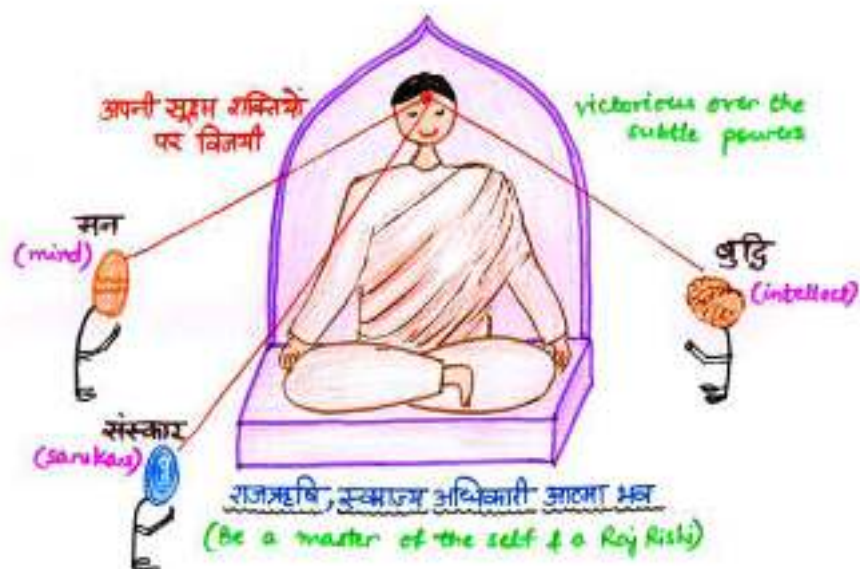 अपनी सूक्ष्म शक्तियों
पर विजयी
victorious over the
subtle powers
मन
(mind)
बुद्धि
(intellect)
संस्कार
(sanskars)
राजऋषि, स्वराज्य अधिकारी आत्मा भव
(Be a master of the self & a Raj Rishi)